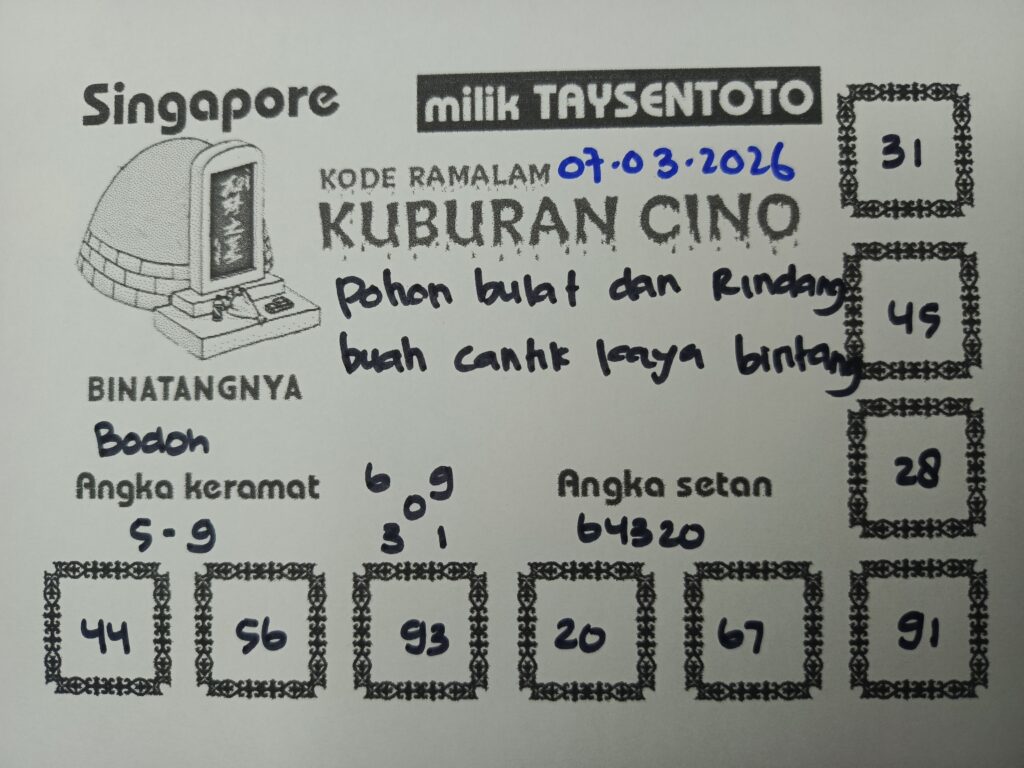 Singapore
milik TAYSENTOTO
KODE RAMALAM 07.03.2026
KUBURAN CINO
Pohon bulat dan Rindang
buah cantik kaya bintang
BINATANGNYA
Bodoh
Angka keramat
5-9
6 9
0
3 1
Angka setan
64320
31
45
28
44
56
93
20
67
91